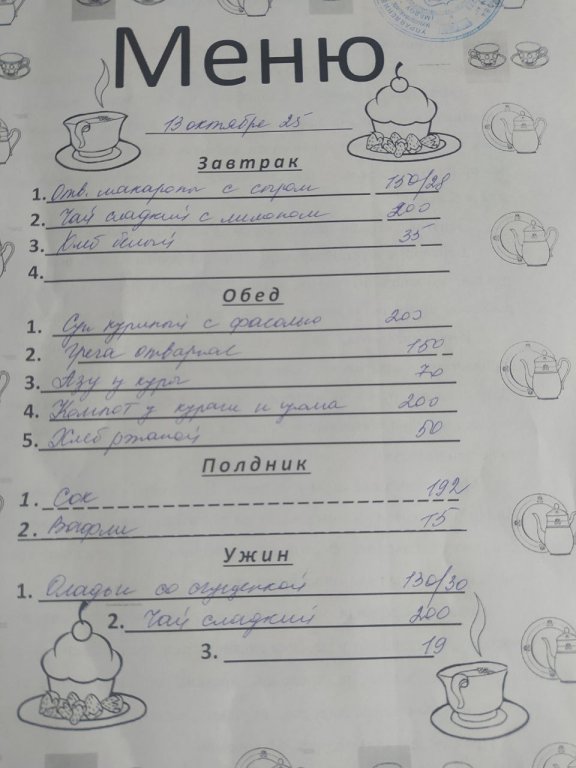 Меню
13 октября 25
Завтрак
1. Отв. макароны с сыром 150/28
2. Чай сладкий с лимоном 200
3. Хлеб белый 35
4.
Обед
1. Суп куриный с фасолью 200
2. Греча отварная 150
3. Азу из куры 70
4. Компот из кураги и изюма 200
5. Хлеб ржаной 50
Полдник
1. Сок 192
2. Вафли 15
Ужин
1. Оладьи со сгущенкой 130/30
2. Чай сладкий 200
3. 19